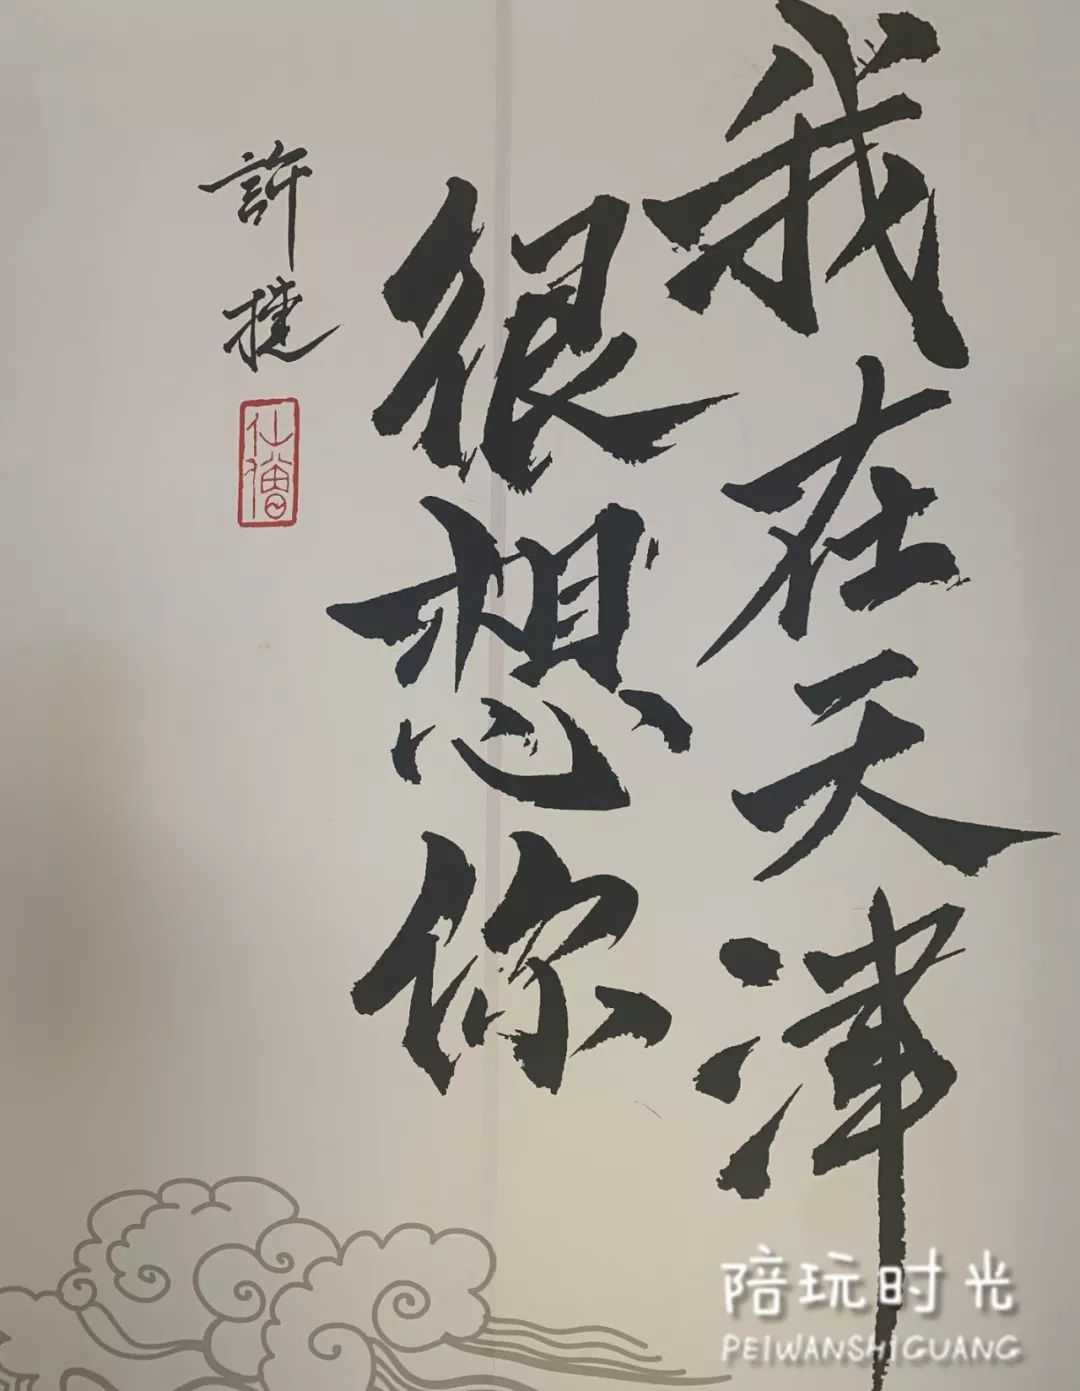 我在天津
很想你
許捷
仙僧
陪玩时光
PEIWANSHIGUANG